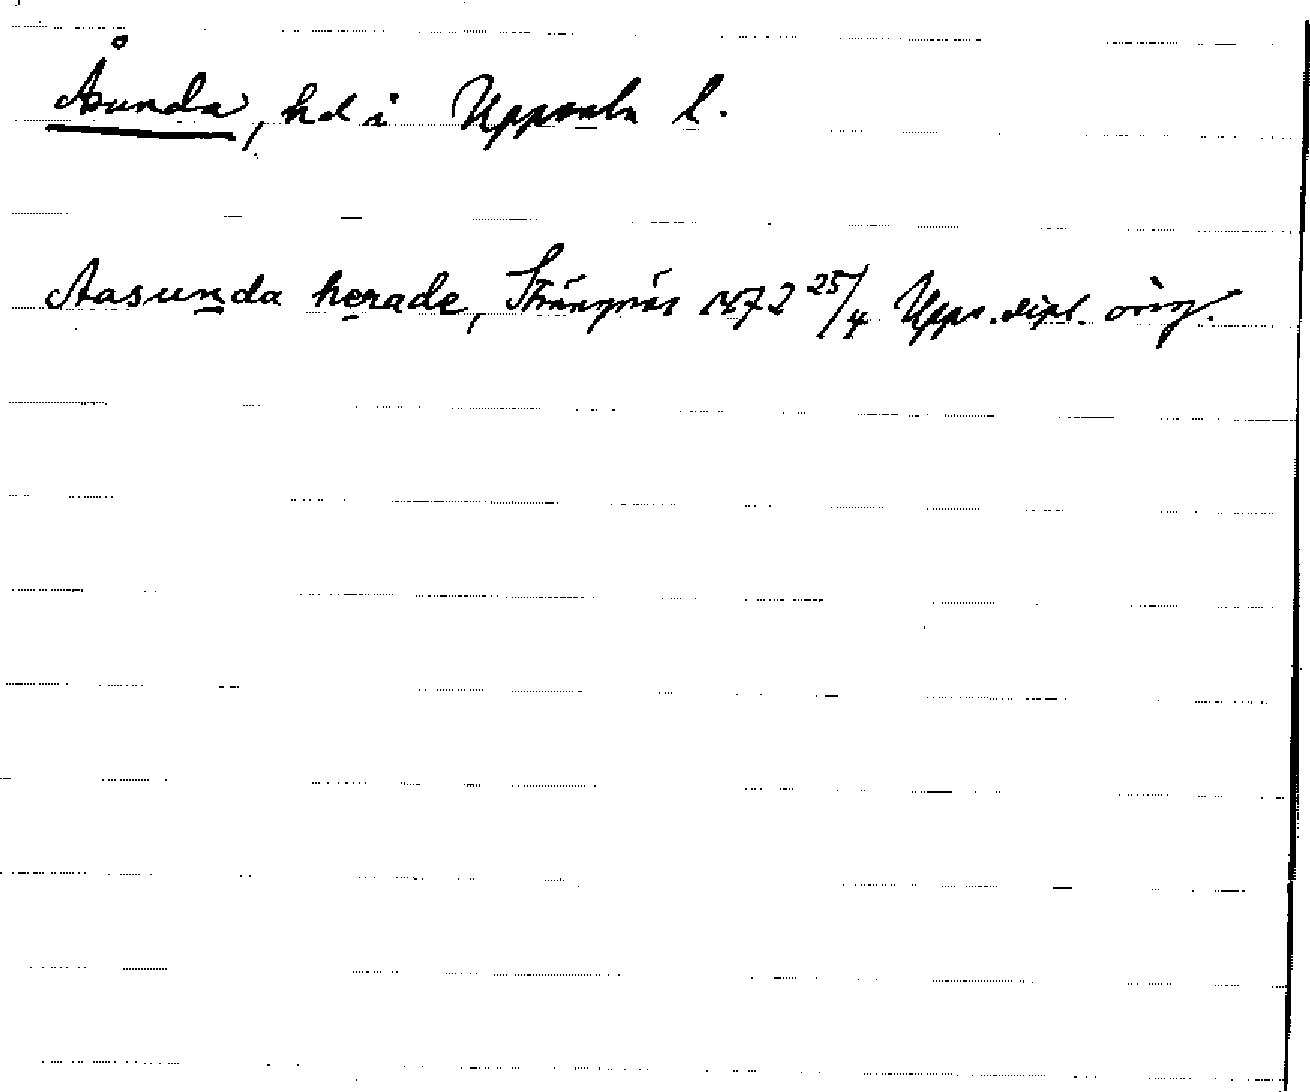 Åsunda, hd i Uppsala l.
Aasunda herade, Strängnäs 1472 25/4 Upps. dipl. orig.